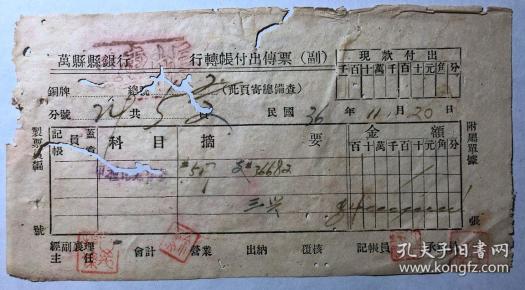 萬縣縣銀行 行轉帳付出傳票(副)
現款付出
千百十萬千百十元角分
銅牌 總號 (此頁寄總備查)
分號 共 5
民國36年11月20日
製票員編 號
記帳員蓋章
科目
摘要
金額
百十萬千百十元角分
附屬單據 張
#57 支36682
三兴
經副襄理
主任
會計 營業 出納 覆核 記帳員
孔夫子旧书网
www.kongfz.com